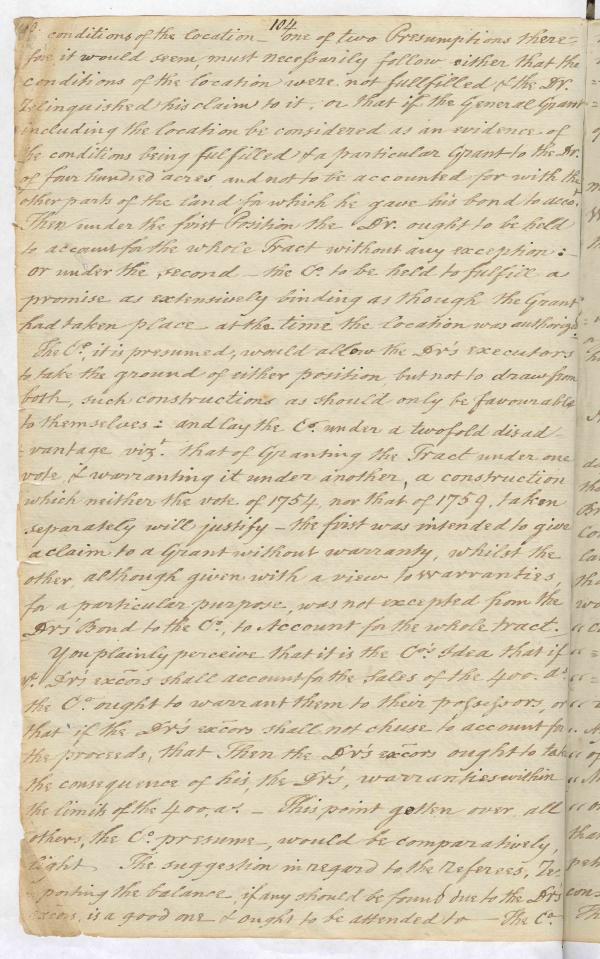 104
conditions of the location – one of two Presumptions there=
fore it would seem must necessarily follow either that the
conditions of the location were not fullfilled & the Dr.
relinquished his claim to it, or that if the General Grant
including the location be considered as an evidence of
the conditions being fulfilled & a particular Grant to the Dr.
of four hundred acres and not to be accounted for with the
other part of the land for which he gave his bond to acct.
Then under the first Position the Dr. ought to be held
to account for the whole Tract without any exception :
or under the second – the Co. to be held to fulfill a
promise as extensively binding as though the Grant
had taken place at the time the location was authoriz
The Co. it is presumed, would allow the Dr's executors
to take the ground of either position but not to draw from
both, such constructions as should only be favourable
to themselves : and lay the Co. under a twofold disad-
-vantage vizt. that of Granting the Tract under one
vote & warranting it under another, a construction
which neither the vote of 1754, nor that of 1759, taken
separately will justify – the first was intended to give
a claim to a Grant without warranty, whilst the
other, although given with a view to warranties,
for a particular purpose, was not excepted from the
Dr's Bond to the Co. to Account for the whole tract.
You plainly perceive that it is the Co's Idea that if
ye. Dr's excors shall account for the Sales of the 400. as
the Co. ought to warrant them to their possessors, or
that if the Dr's excors shall not chuse to account for
the proceeds, that Then the Dr's excors ought to take
the consequence of his, the Dr's, warranties within
the limits of the 400, as. – This point gotten over all
others, the Co. presume, would be comparatively,
light. The suggestion in regard to the referees, re-
-porting the balance, if any should be found due to the Dr's
excors, is a good one & ought to be attended to – The Co.